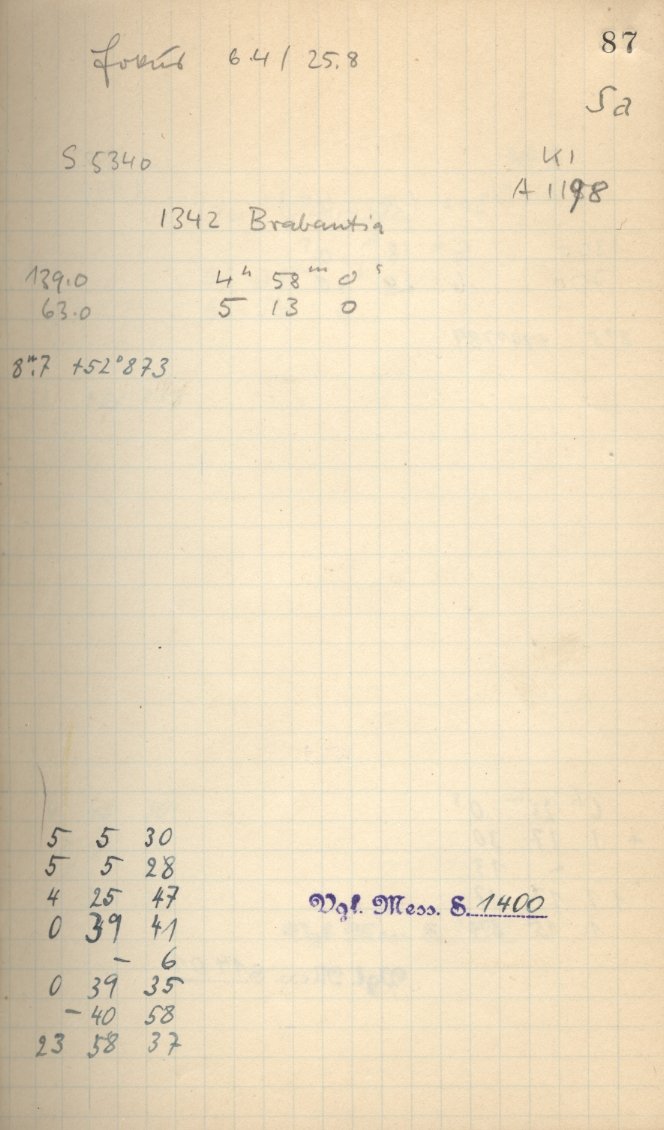 87
Fokus 6.4 / 25.8
Sa
S 5340
KI
A 1198
1342 Brabantia
139.0 4ʰ 58ᵐ 0ˢ
63.0 5 13 0
8ᵐ.7 +52°873
5 5 30
5 5 28
4 25 47
0 39 41
- 6
0 39 35
- 40 58
23 58 37
Vgl. Mess. S. 1400